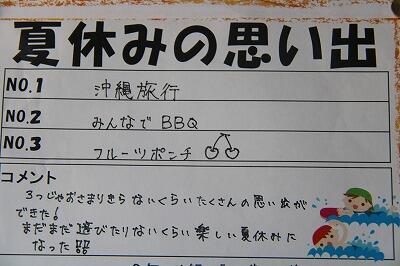 夏休みの思い出
NO.1 沖縄旅行
NO.2 みんなでBBQ
NO.3 フルーツポンチ
コメント
3つじゃおさまりきらないくらいたくさんの思い出が
できた!
まだまだ遊びたりないくらい楽しい夏休みに
なった!!